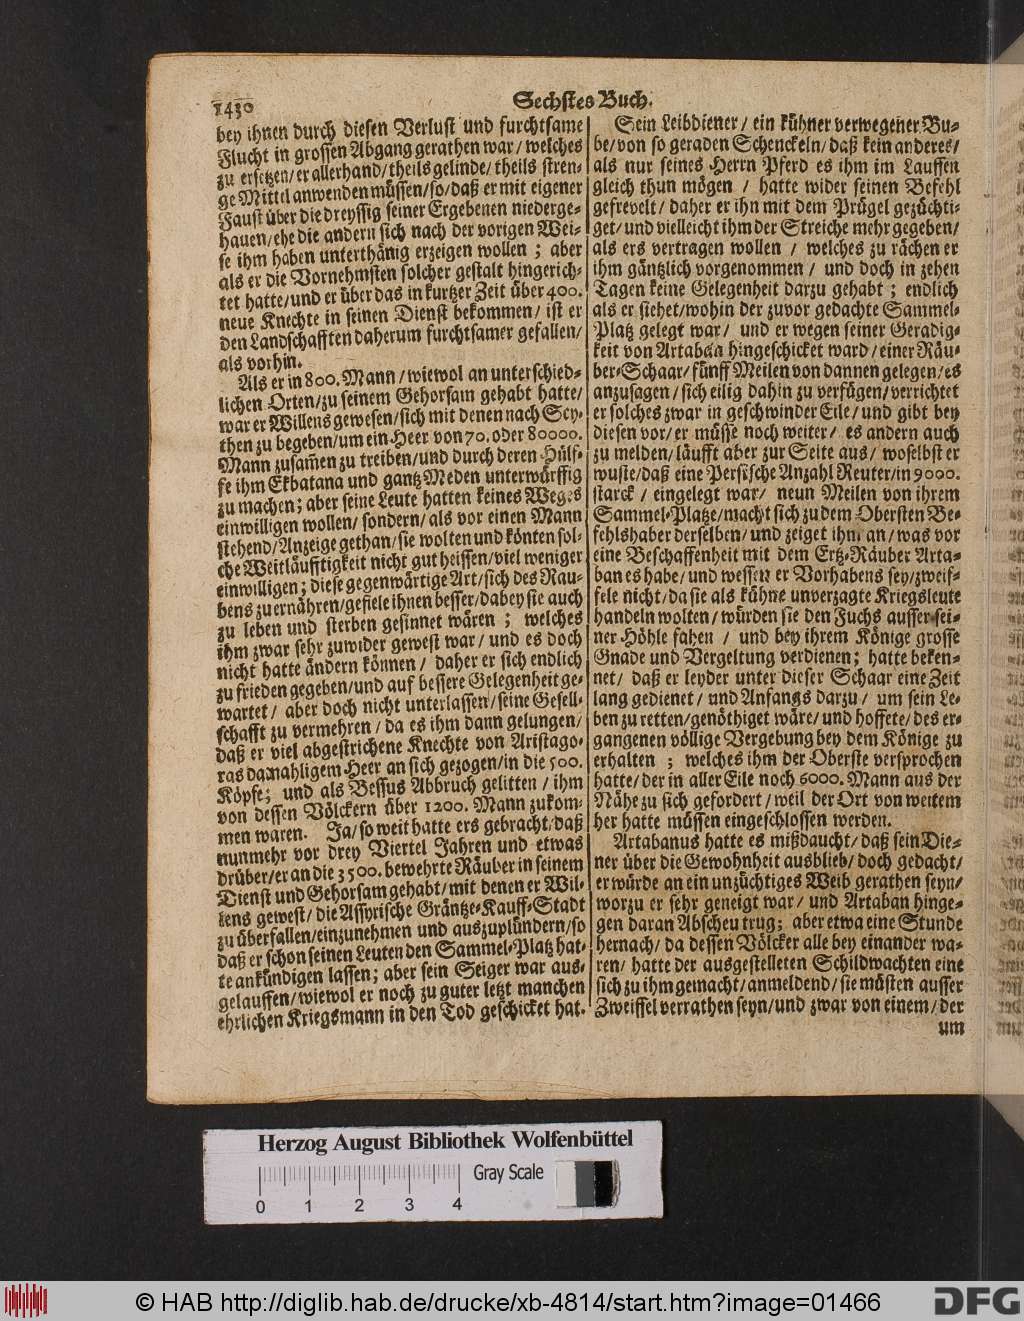 1430
Sechstes Buch.
bey ihnen durch diesen Verlust und furchtsame
Flucht in grossen Abgang gerathen war/ welches
zu ersetzen/ er allerhand/ theils gelinde/ theils stren-
ge Mittel anwenden müssen/ so/ daß er mit eigener
Faust über die dreyssig seiner Ergebenen niederge-
hauen/ ehe die andern sich nach der vorigen Wei-
se ihm haben unterthänig erzeigen wollen ; aber
als er die Vornehmsten solcher gestalt hingerich-
tet hatte/ und er über das in kurtzer Zeit über 400.
neue Knechte in seinen Dienst bekommen/ ist er
den Landschafften daherum furchtsamer gefallen/
als vorhin.
Als er in 800. Mann/ wiewol an unterschied-
lichen Orten/ zu seinem Gehorsam gehabt hatte/
war er Willens gewesen/ sich mit denen nach Scy-
then zu begeben/ um ein Heer von 70. oder 80000.
Mann zusam̃en zu treiben/ und durch deren Hülf-
fe ihm Ekbatana und gantz Meden unterwürffig
zu machen; aber seine Leute hatten keines Weges
einwilligen wollen/ sondern/ als vor einen Mann
stehend/ Anzeige gethan/ sie wolten und könten sol-
che Weitläufftigkeit nicht gut heissen/ viel weniger
einwilligen; diese gegenwärtige Art/ sich des Rau-
bens zu ernähren/ gefiele ihnen besser/ dabey sie auch
zu leben und sterben gesinnet wären ; welches
ihm zwar sehr zuwider gewest war/ und es doch
nicht hatte ändern können/ daher er sich endlich
zu frieden gegeben/ und auf bessere Gelegenheit ge-
wartet/ aber doch nicht unterlassen/ seine Gesell-
schafft zu vermehren/ da es ihm dann gelungen/
daß er viel abgestrichene Knechte von Aristago-
ras damahligem Heer an sich gezogen/ in die 500.
Köpfe; und als Bessus Abbruch gelitten/ ihm
von dessen Völckern über 1200. Mann zukom-
men waren. Ja/ so weit hatte ers gebracht/ daß
nunmehr vor drey Viertel Jahren und etwas
drüber/ er an die 3500. bewehrte Räuber in seinem
Dienst und Gehorsam gehabt/ mit denen er Wil-
lens gewest/ die Assyrische Gräntze-Kauff-Stadt
zu überfallen/ einzunehmen und auszuplündern/ so
daß er schon seinen Leuten den Sammel-Platz hat-
te ankündigen lassen; aber sein Seiger war aus-
gelauffen/ wiewol er noch zu guter letzt manchen
ehrlichen Kriegsmann in den Tod geschicket hat.
Sein Leibdiener/ ein kühner verwegener Bu-
be/ von so geraden Schenckeln/ daß kein anderes/
als nur seines Herrn Pferd es ihm im Lauffen
gleich thun mögen / hatte wider seinen Befehl
gefrevelt/ daher er ihn mit dem Prügel gezüchti-
get/ und vielleicht ihm der Streiche mehr gegeben/
als ers vertragen wollen / welches zu rächen er
ihm gäntzlich vorgenommen / und doch in zehen
Tagen keine Gelegenheit darzu gehabt ; endlich
als er siehet/ wohin der zuvor gedachte Sammel-
Platz gelegt war/ und er wegen seiner Geradig-
keit von Artaban hingeschicket ward/ einer Räu-
ber-Schaar/ fünff Meilen von dannen gelegen/ es
anzusagen/ sich eilig dahin zu verfügen/ verrichtet
er solches zwar in geschwinder Eile/ und gibt bey
diesen vor/ er müsse noch weiter/ es andern auch
zu melden/ läufft aber zur Seite aus/ woselbst er
wuste/ daß eine Persische Anzahl Reuter/ in 9000.
starck / eingelegt war/ neun Meilen von ihrem
Sammel-Platze/ macht sich zu dem Obersten Be-
fehlshaber derselben/ und zeiget ihm an/ was vor
eine Beschaffenheit mit dem Ertz-Räuber Arta-
ban es habe/ und wessen er Vorhabens sey/ zweif-
fele nicht/ da sie als kühne unverzagte Kriegsleute
handeln wolten/ würden sie den Fuchs ausser sei-
ner Höhle fahen / und bey ihrem Könige grosse
Gnade und Vergeltung verdienen; hatte beken-
net/ daß er leyder unter dieser Schaar eine Zeit
lang gedienet/ und Anfangs darzu/ um sein Le-
ben zu retten/ genöthiget wäre/ und hoffete/ des er-
gangenen völlige Vergebung bey dem Könige zu
erhalten ; welches ihm der Oberste versprochen
hatte/ der in aller Eile noch 6000. Mann aus der
Nähe zu sich gefordert/ weil der Ort von weitem
her hatte müssen eingeschlossen werden.
Artabanus hatte es mißdaucht/ daß sein Die-
ner über die Gewohnheit ausblieb/ doch gedacht/
er würde an ein unzüchtiges Weib gerathen seyn/
worzu er sehr geneigt war/ und Artaban hinge-
gen daran Abscheu trug; aber etwa eine Stunde
hernach/ da dessen Völcker alle bey einander wa-
ren/ hatte der ausgestelleten Schildwachten eine
sich zu ihm gemacht/ anmeldend/ sie müsten ausser
Zweiffel verrathen seyn/ und zwar von einem/ der
um
Herzog August Bibliothek Wolfenbüttel
Gray Scale
0 1 2 3 4
© HAB http://diglib.hab.de/drucke/xb-4814/start.htm?image=01466
DFG